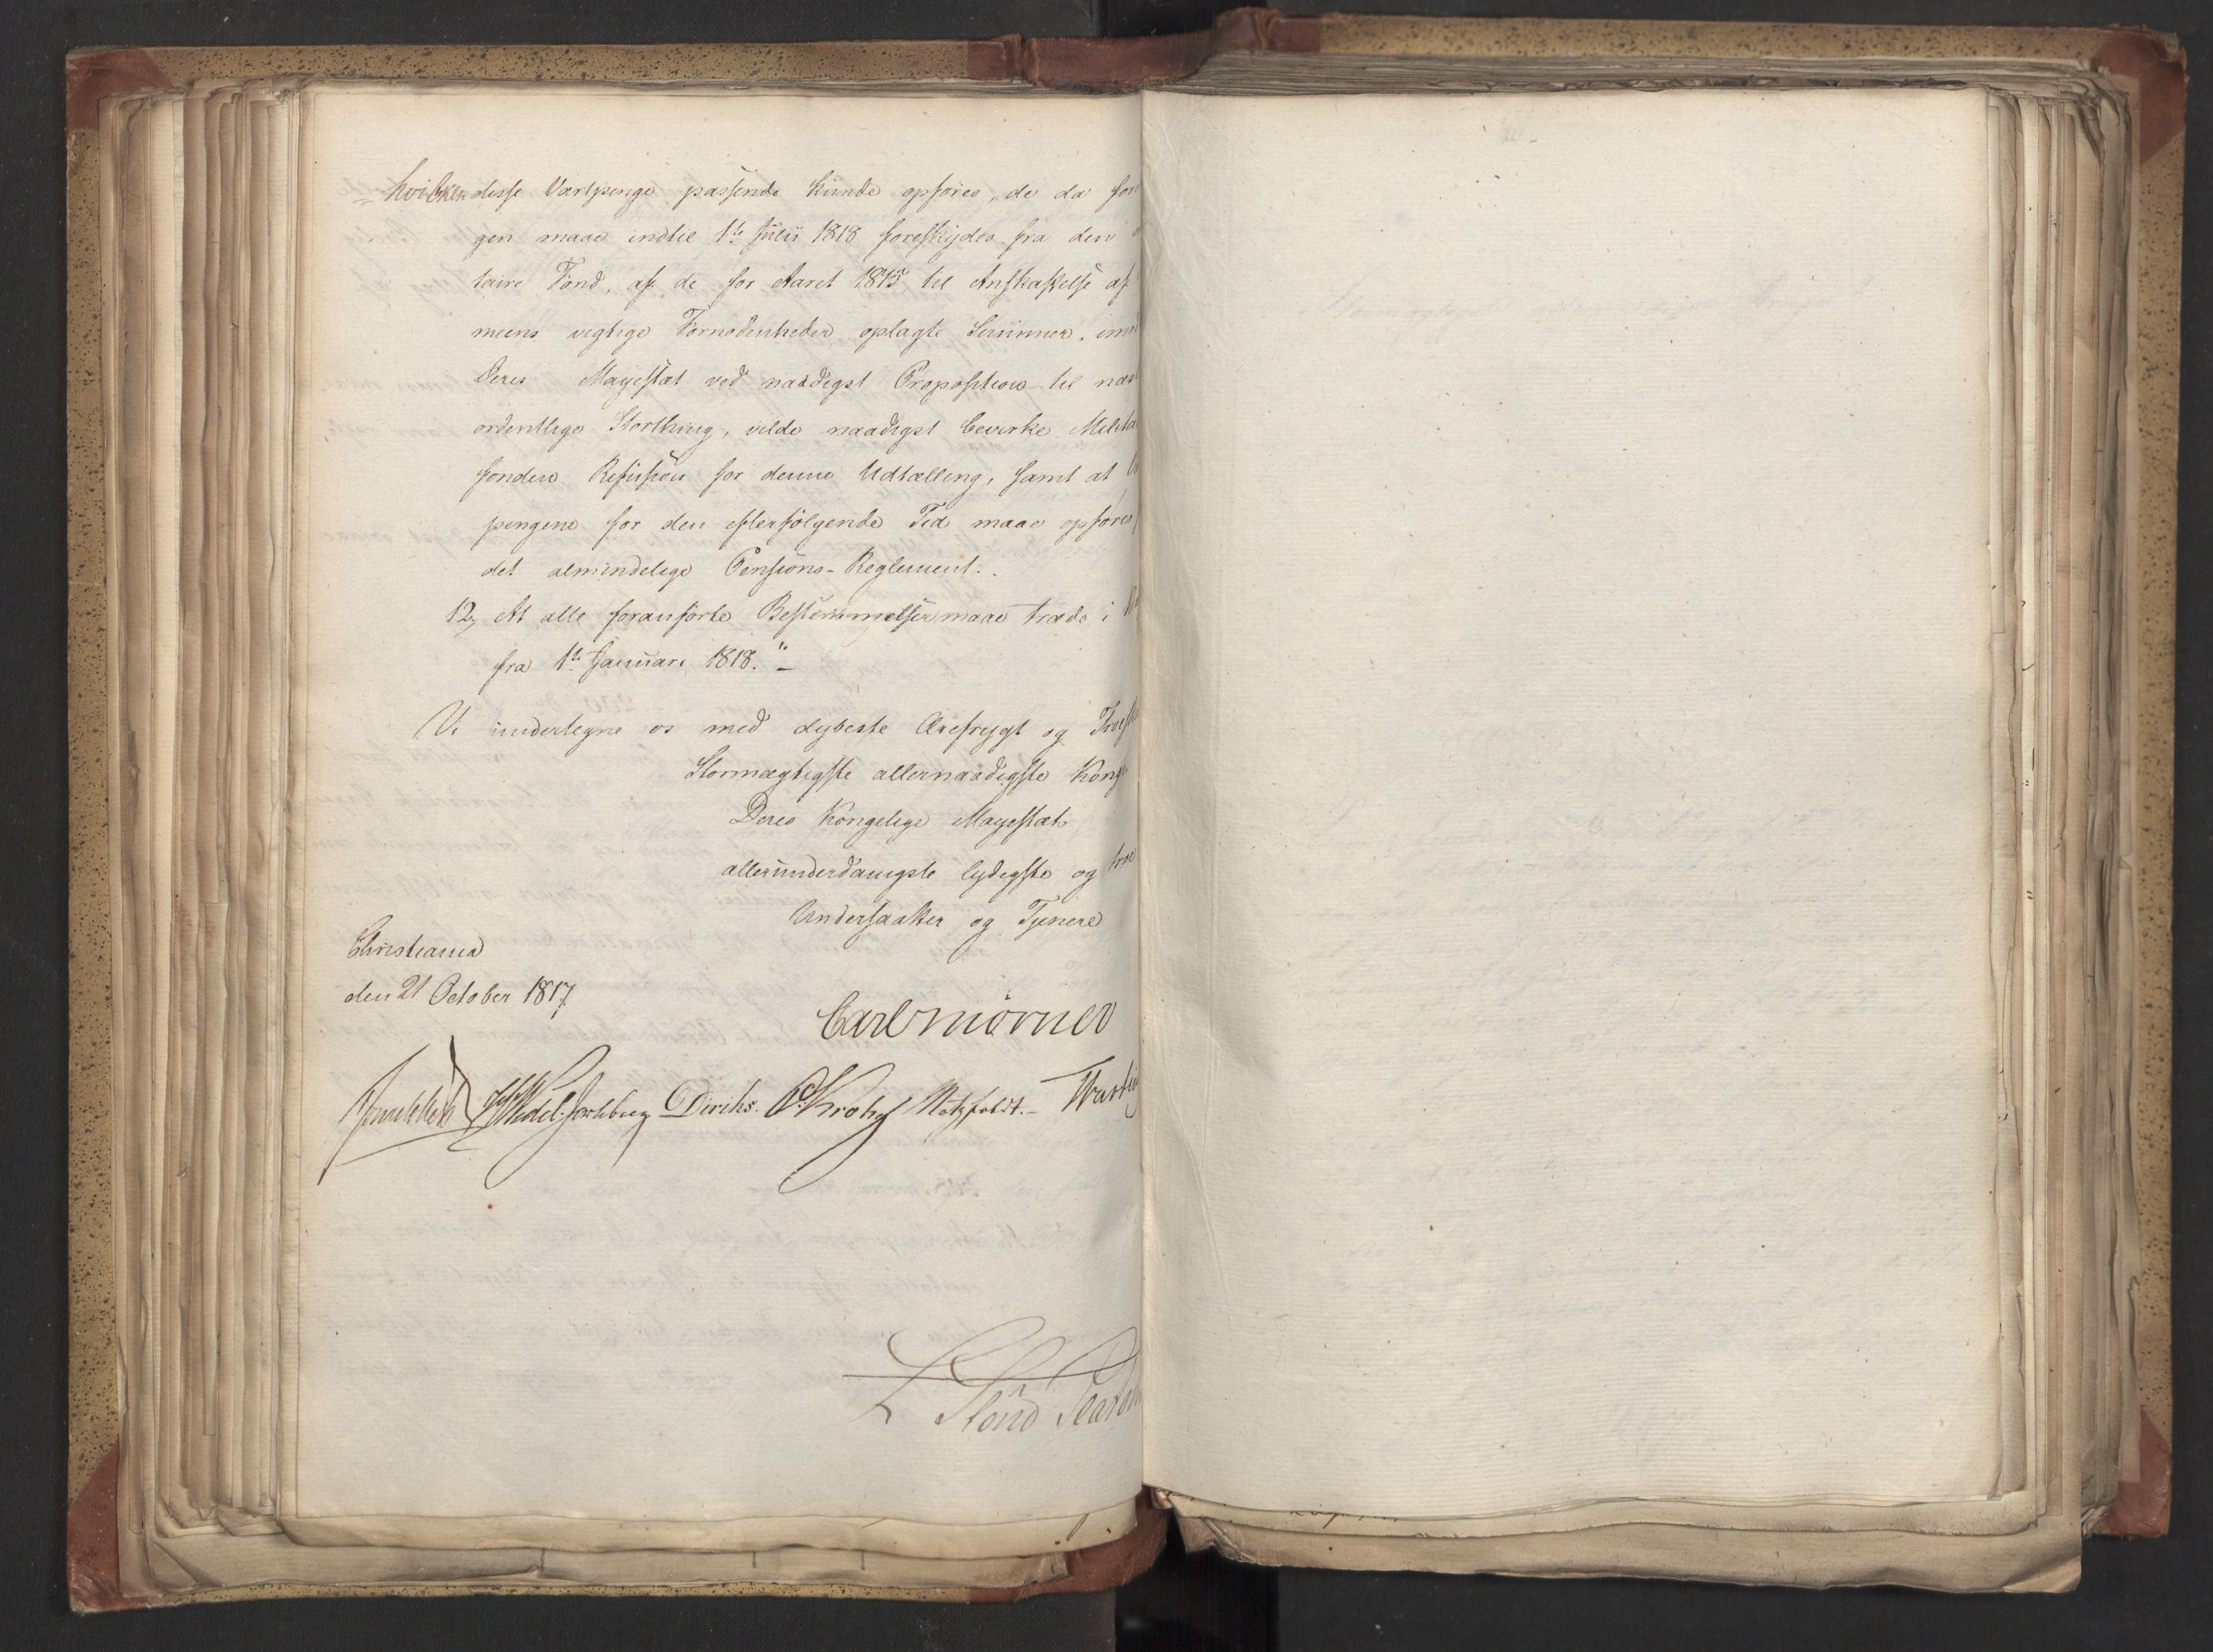 hvilken disse Vartpenge passende kunde opføres, de da for
gen maae indtil 1ste Julii 1818 foreskydes fra den
taire Fond, af de for Aaret 1815 til Anskaffelse af
meens vigtige Fornødenheder oplagte Summer, imod
Deres Mayestæt ved naadigst Proposition til næst
ordentlige Storthing, vilde naadigst bevirke Milita
fondens Refusion for denne Udtælling, samt at
pengene for den efterfølgende Tid maae opføres
det almindelige Pensions-Reglement.
12, At alle foranførte Bestemmelser maae træde i
fra 1ste Januari 1818."
Vi undertegne os med dybeste Ærefrygt og Troeska
Stormægtigste allernaadigste Konge
Deres Kongelige Mayestæts
allerunderdanigste lydigste og troe
Undersaatter og Tjenere
Christiania
den 21 October 1817
Carl Mörner
Sommerhielm HWedel-Jarlsberg Diriks. CKrohg Motzfeldt.